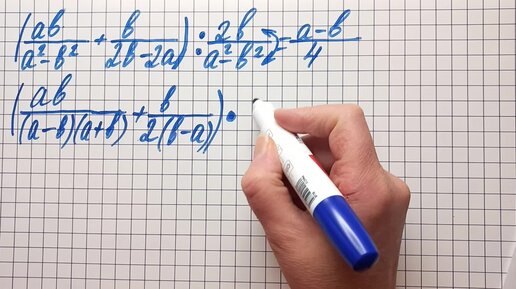 (ab/(a²-b²) + b/(2b-2a)) : 2b/(a²-b²) = (a-b)/4
(ab/((a-b)(a+b)) + b/(2(b-a))) ·